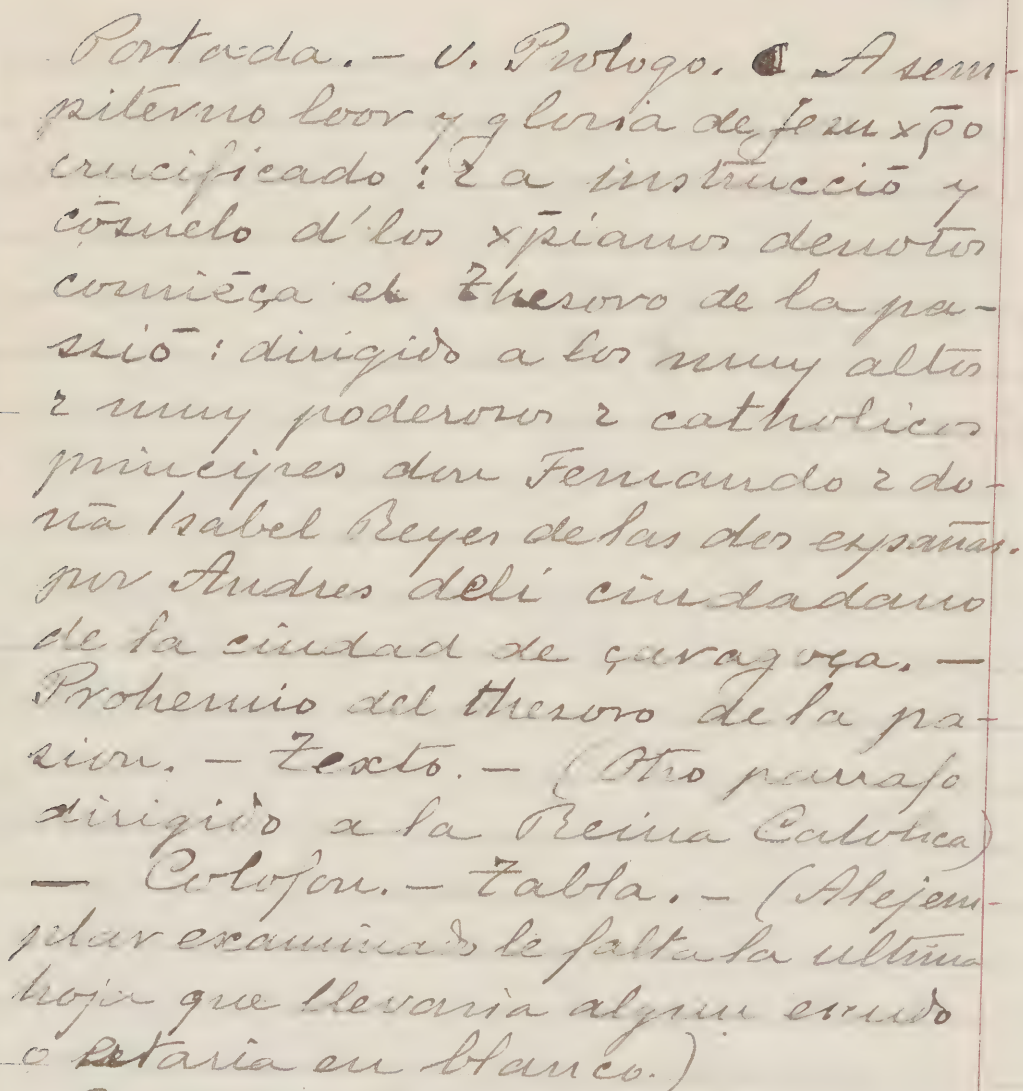 Portada. – v. Prologo. ¶ A sem-
pitérno loor y gloria de Jesu xp̄o
crucificado : ꝛ a instrucciō y
cōsuelo d'los xp̄ianos deuotos
comiēça el thesoro de la pa-
ssiō : dirigido a los muy altos
ꝛ muy poderosos ꝛ catholicos
principes don Fernando ꝛ do-
ña Isabel Reyes de las dos españas.
por Andres deli ciudadano
de la ciudad de çaragoça. –
Prohemio del thesoro de la pa-
sion. – Texto. – (Otro parrafo
dirigido a la Reina Catolica)
– Colofon. – Tabla. – (Al ejem-
plar examinado le falta la ultima
hoja que llevaria algun escudo
o estaria en blanco.)